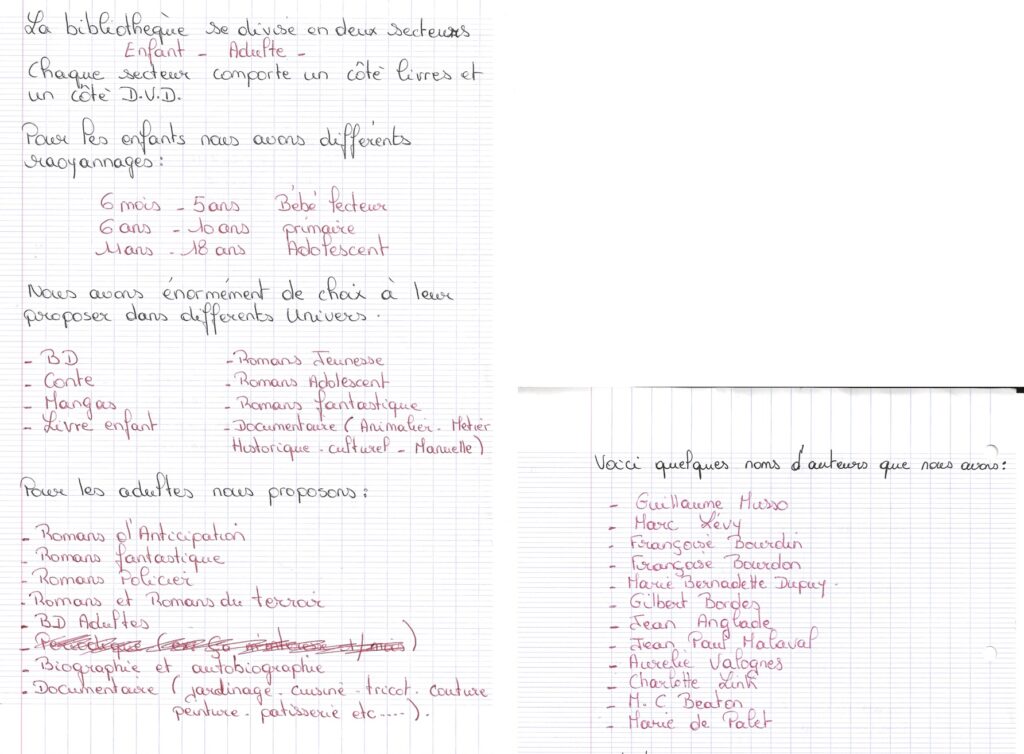 La bibliothèque se divise en deux secteurs
Enfant - Adulte -
Chaque secteur comporte un côté livres et
un côté D.V.D.
Pour les enfants nous avons différents
raoyannages :
6 mois - 5 ans Bébé lecteur
6 ans - 10 ans primaire
11 ans - 18 ans Adolescent
Nous avons énormément de choix à leur
proposer dans différents Univers.
- BD
- Conte
- Mangas
- Livre enfant
- Romans Jeunesse
- Romans Adolescent
- Romans fantastique
- Documentaire (Animalier - Métier
Historique - culturel - Manuelle)
Pour les adultes nous proposons :
- Romans d'Anticipation
- Romans fantastique
- Romans Policier
- Romans et Romans du terroir
- BD Adultes
- Biographie et autobiographie
- Documentaire (jardinage - cuisine - tricot - couture
peinture - patisserie etc .....).
Voici quelques noms d'auteurs que nous avons :
- Guillaume Musso
- Marc Lévy
- Françoise Bourdin
- Françoise Bourdon
- Marie Bernadette Dupuy.
- Gilbert Bordes
- Jean Anglade
- Jean Paul Malaval
- Aurelie Valognes
- Charlotte Link
- M. C Beaton
- Marie de Palet